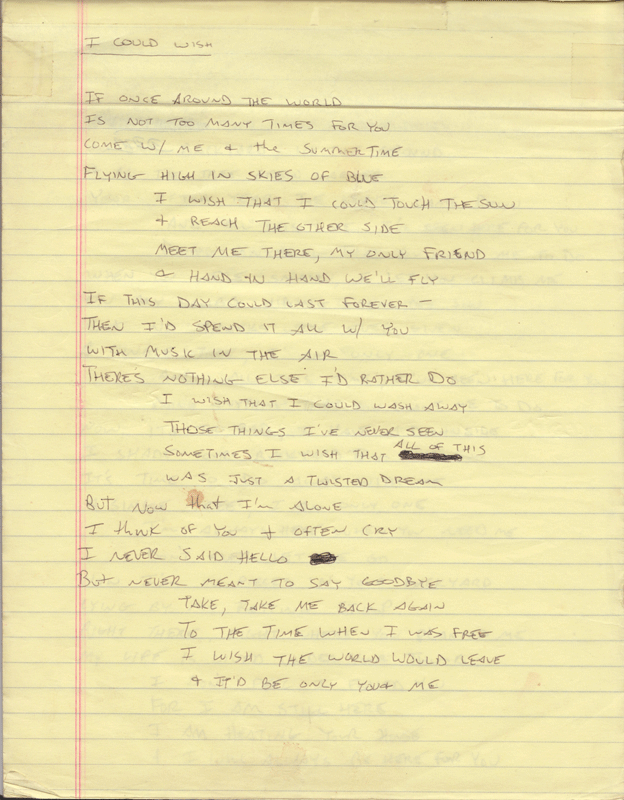 I COULD WISH
IF ONCE AROUND THE WORLD
IS NOT TOO MANY TIMES FOR YOU
COME W/ ME & the SUMMERTIME
FLYING HIGH IN SKIES OF BLUE
I WISH THAT I COULD TOUCH THE SUN
& REACH THE OTHER SIDE
MEET ME THERE, MY ONLY FRIEND
& HAND IN HAND WE'LL FLY
IF THIS DAY COULD LAST FOREVER –
THEN I'D SPEND IT ALL W/ YOU
WITH MUSIC IN THE AIR
THERE'S NOTHING ELSE I'D RATHER DO
I WISH THAT I COULD WASH AWAY
THOSE THINGS I'VE NEVER SEEN
SOMETIMES I WISH THAT ALL OF THIS
WAS JUST A TWISTED DREAM
BUT NOW that I'm ALONE
I thINK OF YOU & OFTEN CRY
I NEVER SAID HELLO
BUT NEVER MEANT TO SAY GOODBYE
TAKE, TAKE ME BACK AGAIN
TO THE TIME WHEN I WAS FREE
I WISH THE WORLD WOULD LEAVE
& IT'D BE ONLY YOU & ME
FOR I AM STILL HERE